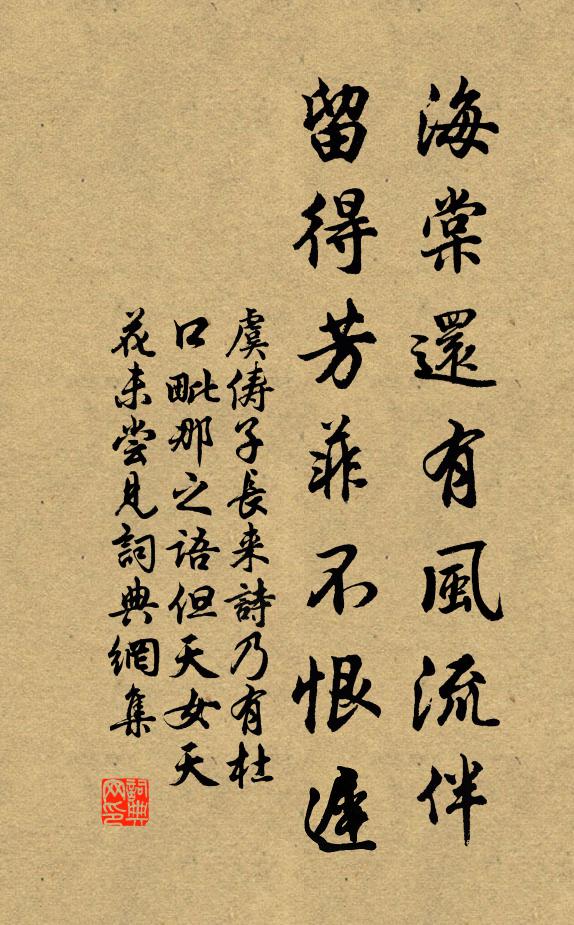 海棠還有風流伴
留得芳菲不恨遲
虞儔子長来詩乃有杜
口毗那之語但天女天
花未嘗見詞典網集
詞典网印